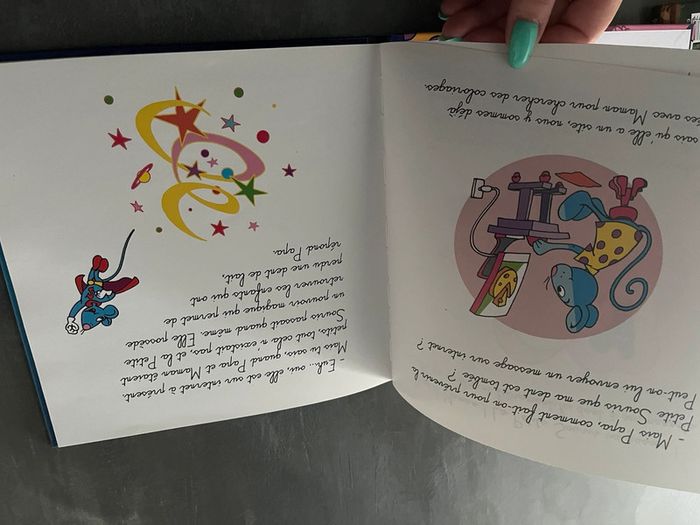 - Mais Papa, comment fait-on pour prévenir la
Petite Souris que ma dent est tombée ?
Peut-on lui envoyer un message sur internet ?
sais qu'elle a un site, nous y sommes déjà
ées avec Maman pour chercher des coloriages.
- Euh... oui, elle est sur internet à présent.
Mais tu sais, quand Papa et Maman étaient
petits, tout cela n'existait pas, et la Petite
Souris passait quand même. Elle possède
un pouvoir magique qui permet de
retrouver les enfants qui ont
perdu une dent de lait,
répond Papa.